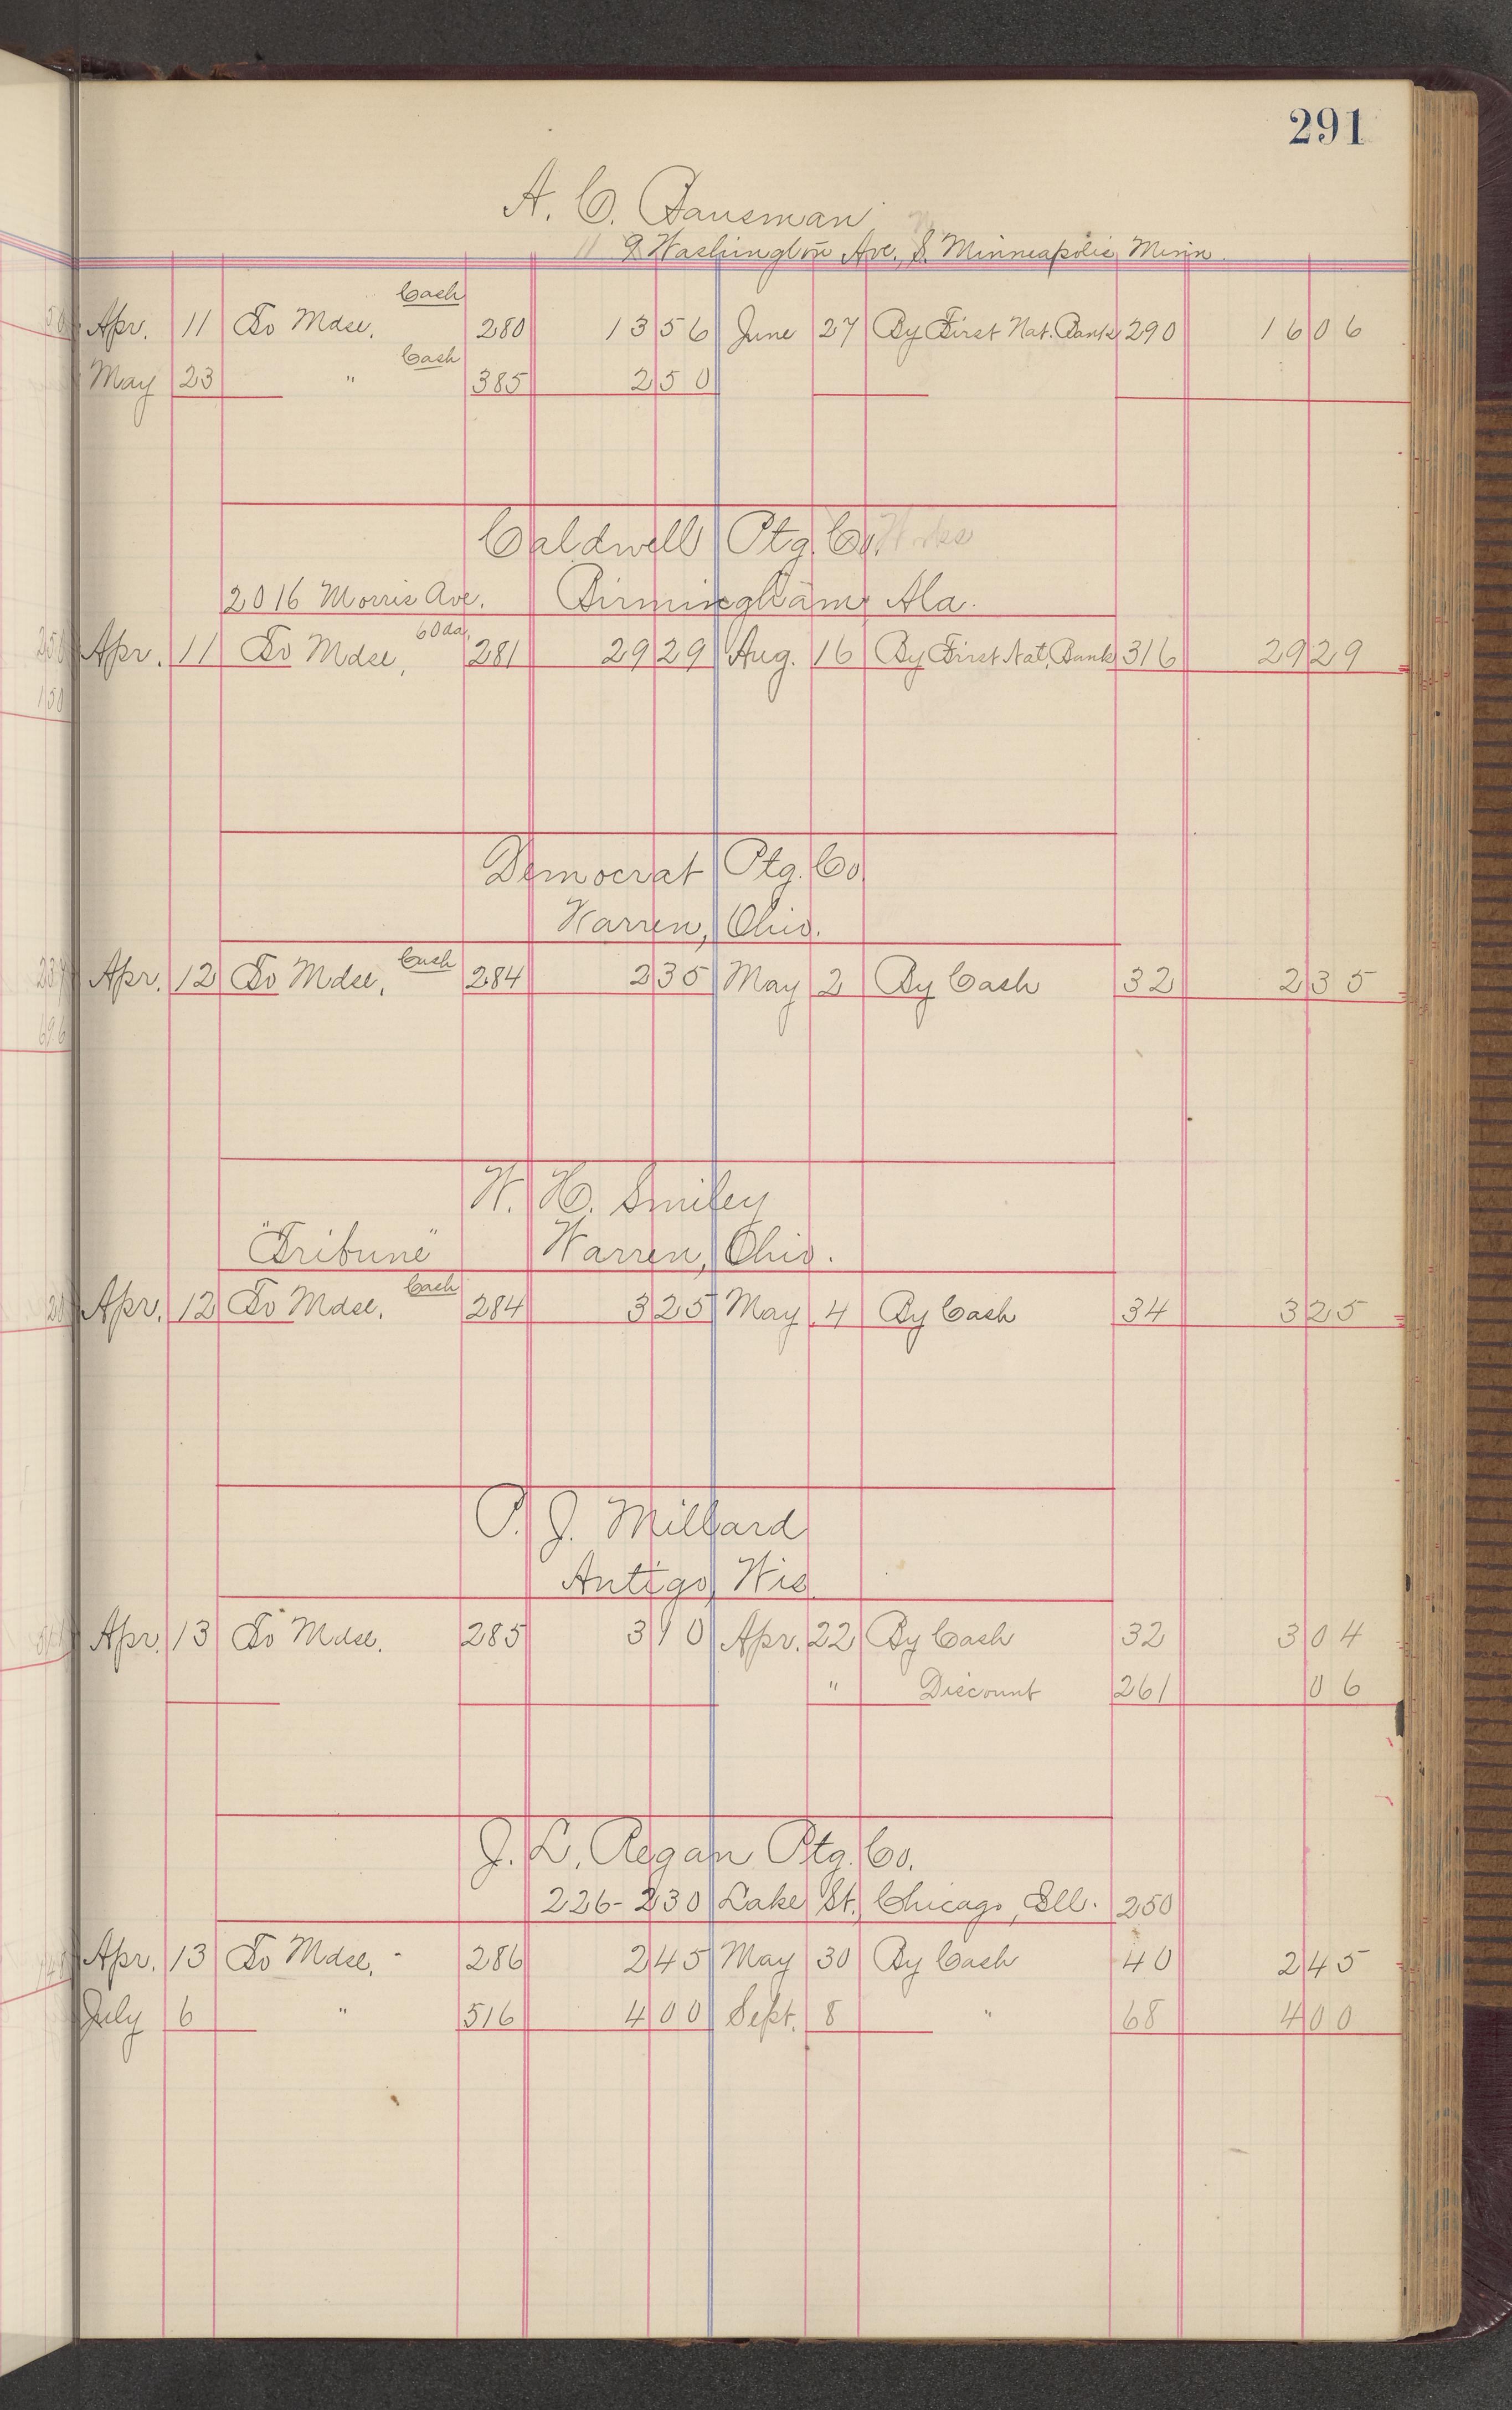 291
A. C. Bausman
9 Washington Ave. S. Minneapolis Minn.
Cash
Apr. 11 To Mdse. 280 13 56 June 27 By First Nat. Bank 290 16 06
Cash
May 23 " 385 2 50
Caldwell Ptg. Co. Works
2016 Morris Ave. Birmingham, Ala.
60 da.
Apr. 11 To Mdse, 281 29 29 Aug. 16 By First Nat. Bank 316 29 29
Democrat Ptg. Co.
Warren, Ohio.
Cash
Apr. 12 To Mdse, 284 2 35 May 2 By Cash 32 2 35
W. H. Smiley
"Tribune" Warren, Ohio.
Cash
Apr. 12 To Mdse. 284 3 25 May 4 By Cash 34 3 25
P. J. Millard
Antigo, Wis.
Apr. 13 To Mdse. 285 3 10 Apr. 22 By Cash 32 3 04
" Discount 261 06
J. L. Regan Ptg. Co.
226-230 Lake St., Chicago, Ill. 250
Apr. 13 To Mdse. 286 2 45 May 30 By Cash 40 2 45
July 6 " 516 4 00 Sept. 8 " 68 4 00